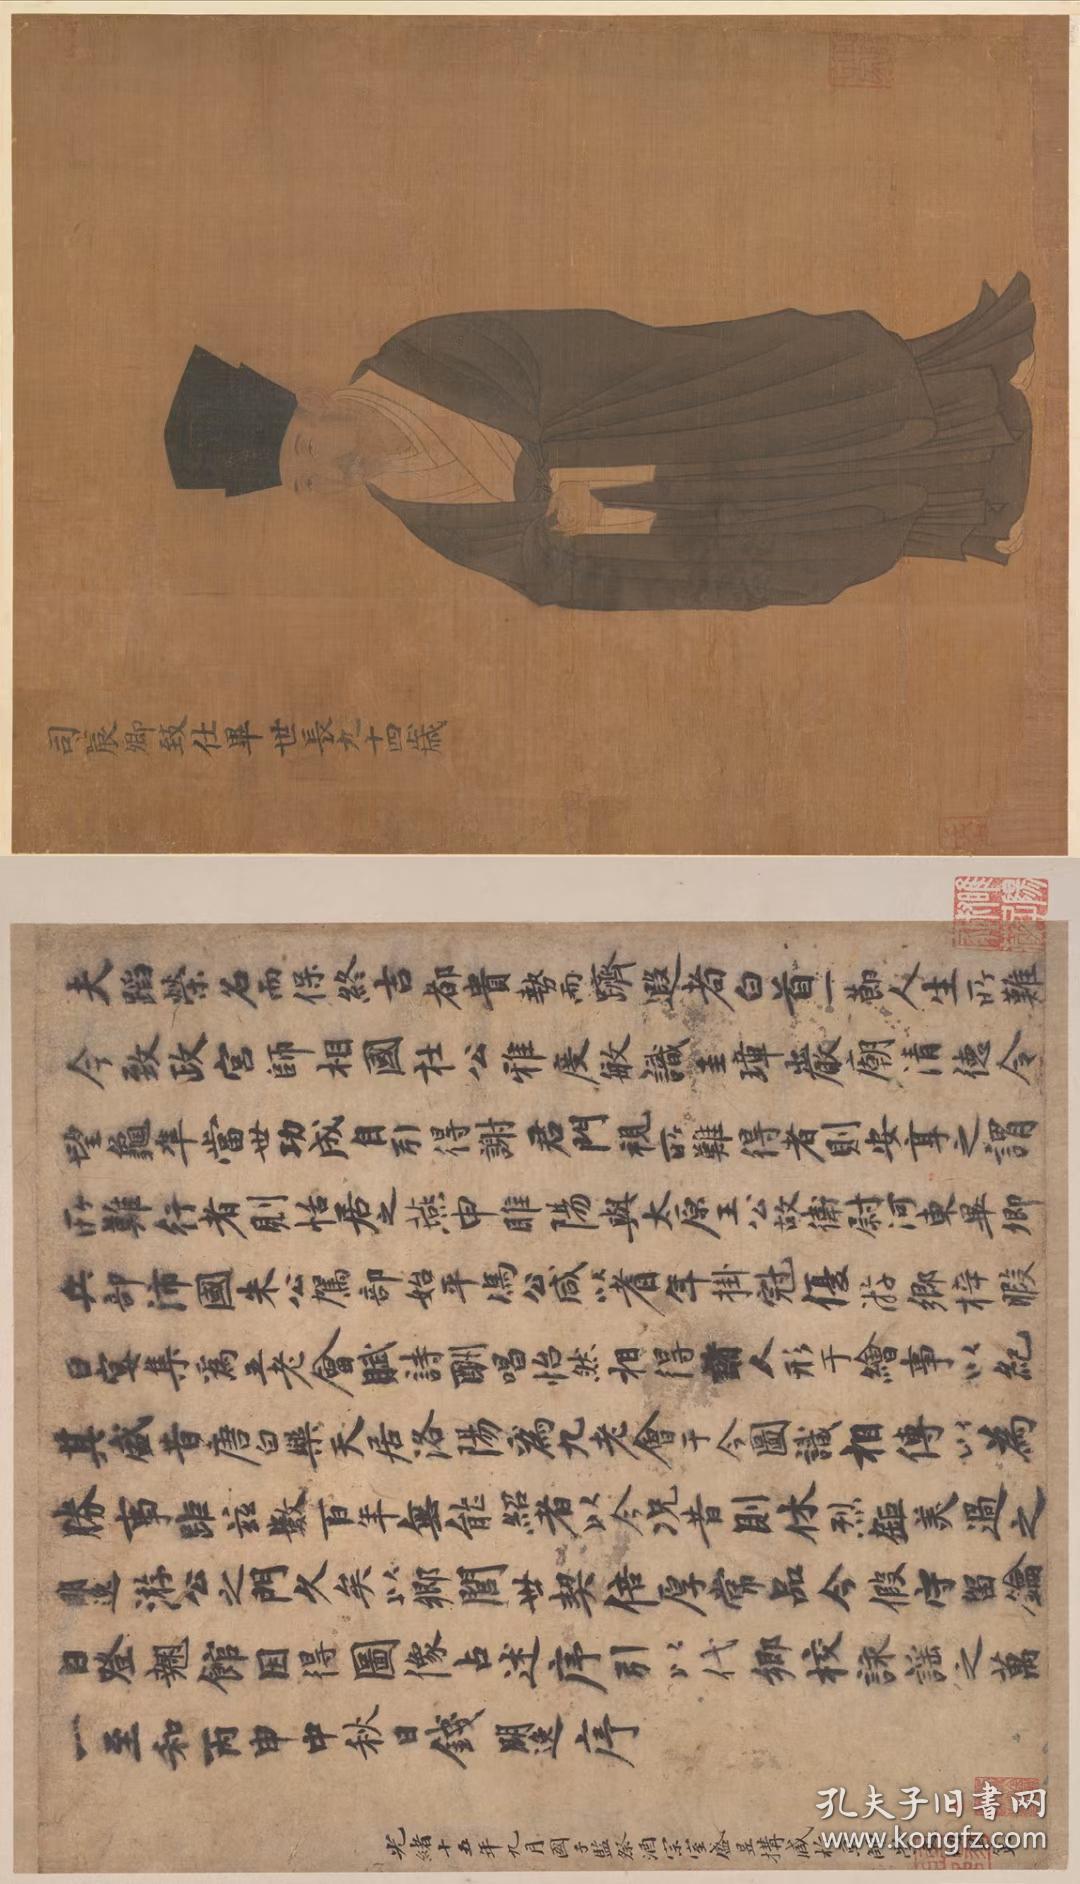 司農卿致仕畢世長九十四歲
夫蹈榮名而保終吉都貴勢而躋遐耉白首一節人生所難
今致政宮師相國杜公雅度敏識圭璋巖廟清德令
望龜準當世功成自引得謝君門視所難得者則安享之謂
所難行者則恬居之燕申睢陽與太原王公故衛尉河東畢卿
兵部沛國朱公駕部始平馮公咸以耆年掛冠優游鄉梓暇
日宴集爲五老會賦詩酬唱怡然相得諸人形于繪事以紀
其盛昔唐白樂天居洛陽爲九老會于今圖識相傳以爲
勝事距茲數百年無能紹者以今況昔則休烈鉅美過之
明逸游公之門久矣以鄉閭世契倍厚常品今假守留鑰
日登翹館因得圖像占述序引以代鄉校詠謠之萬
一至和丙申中秋日錢明逸序
光緒十五年九月國子監祭酒宗室盛昱搆
睢陽
孔夫子旧書网
www.kongfz.com